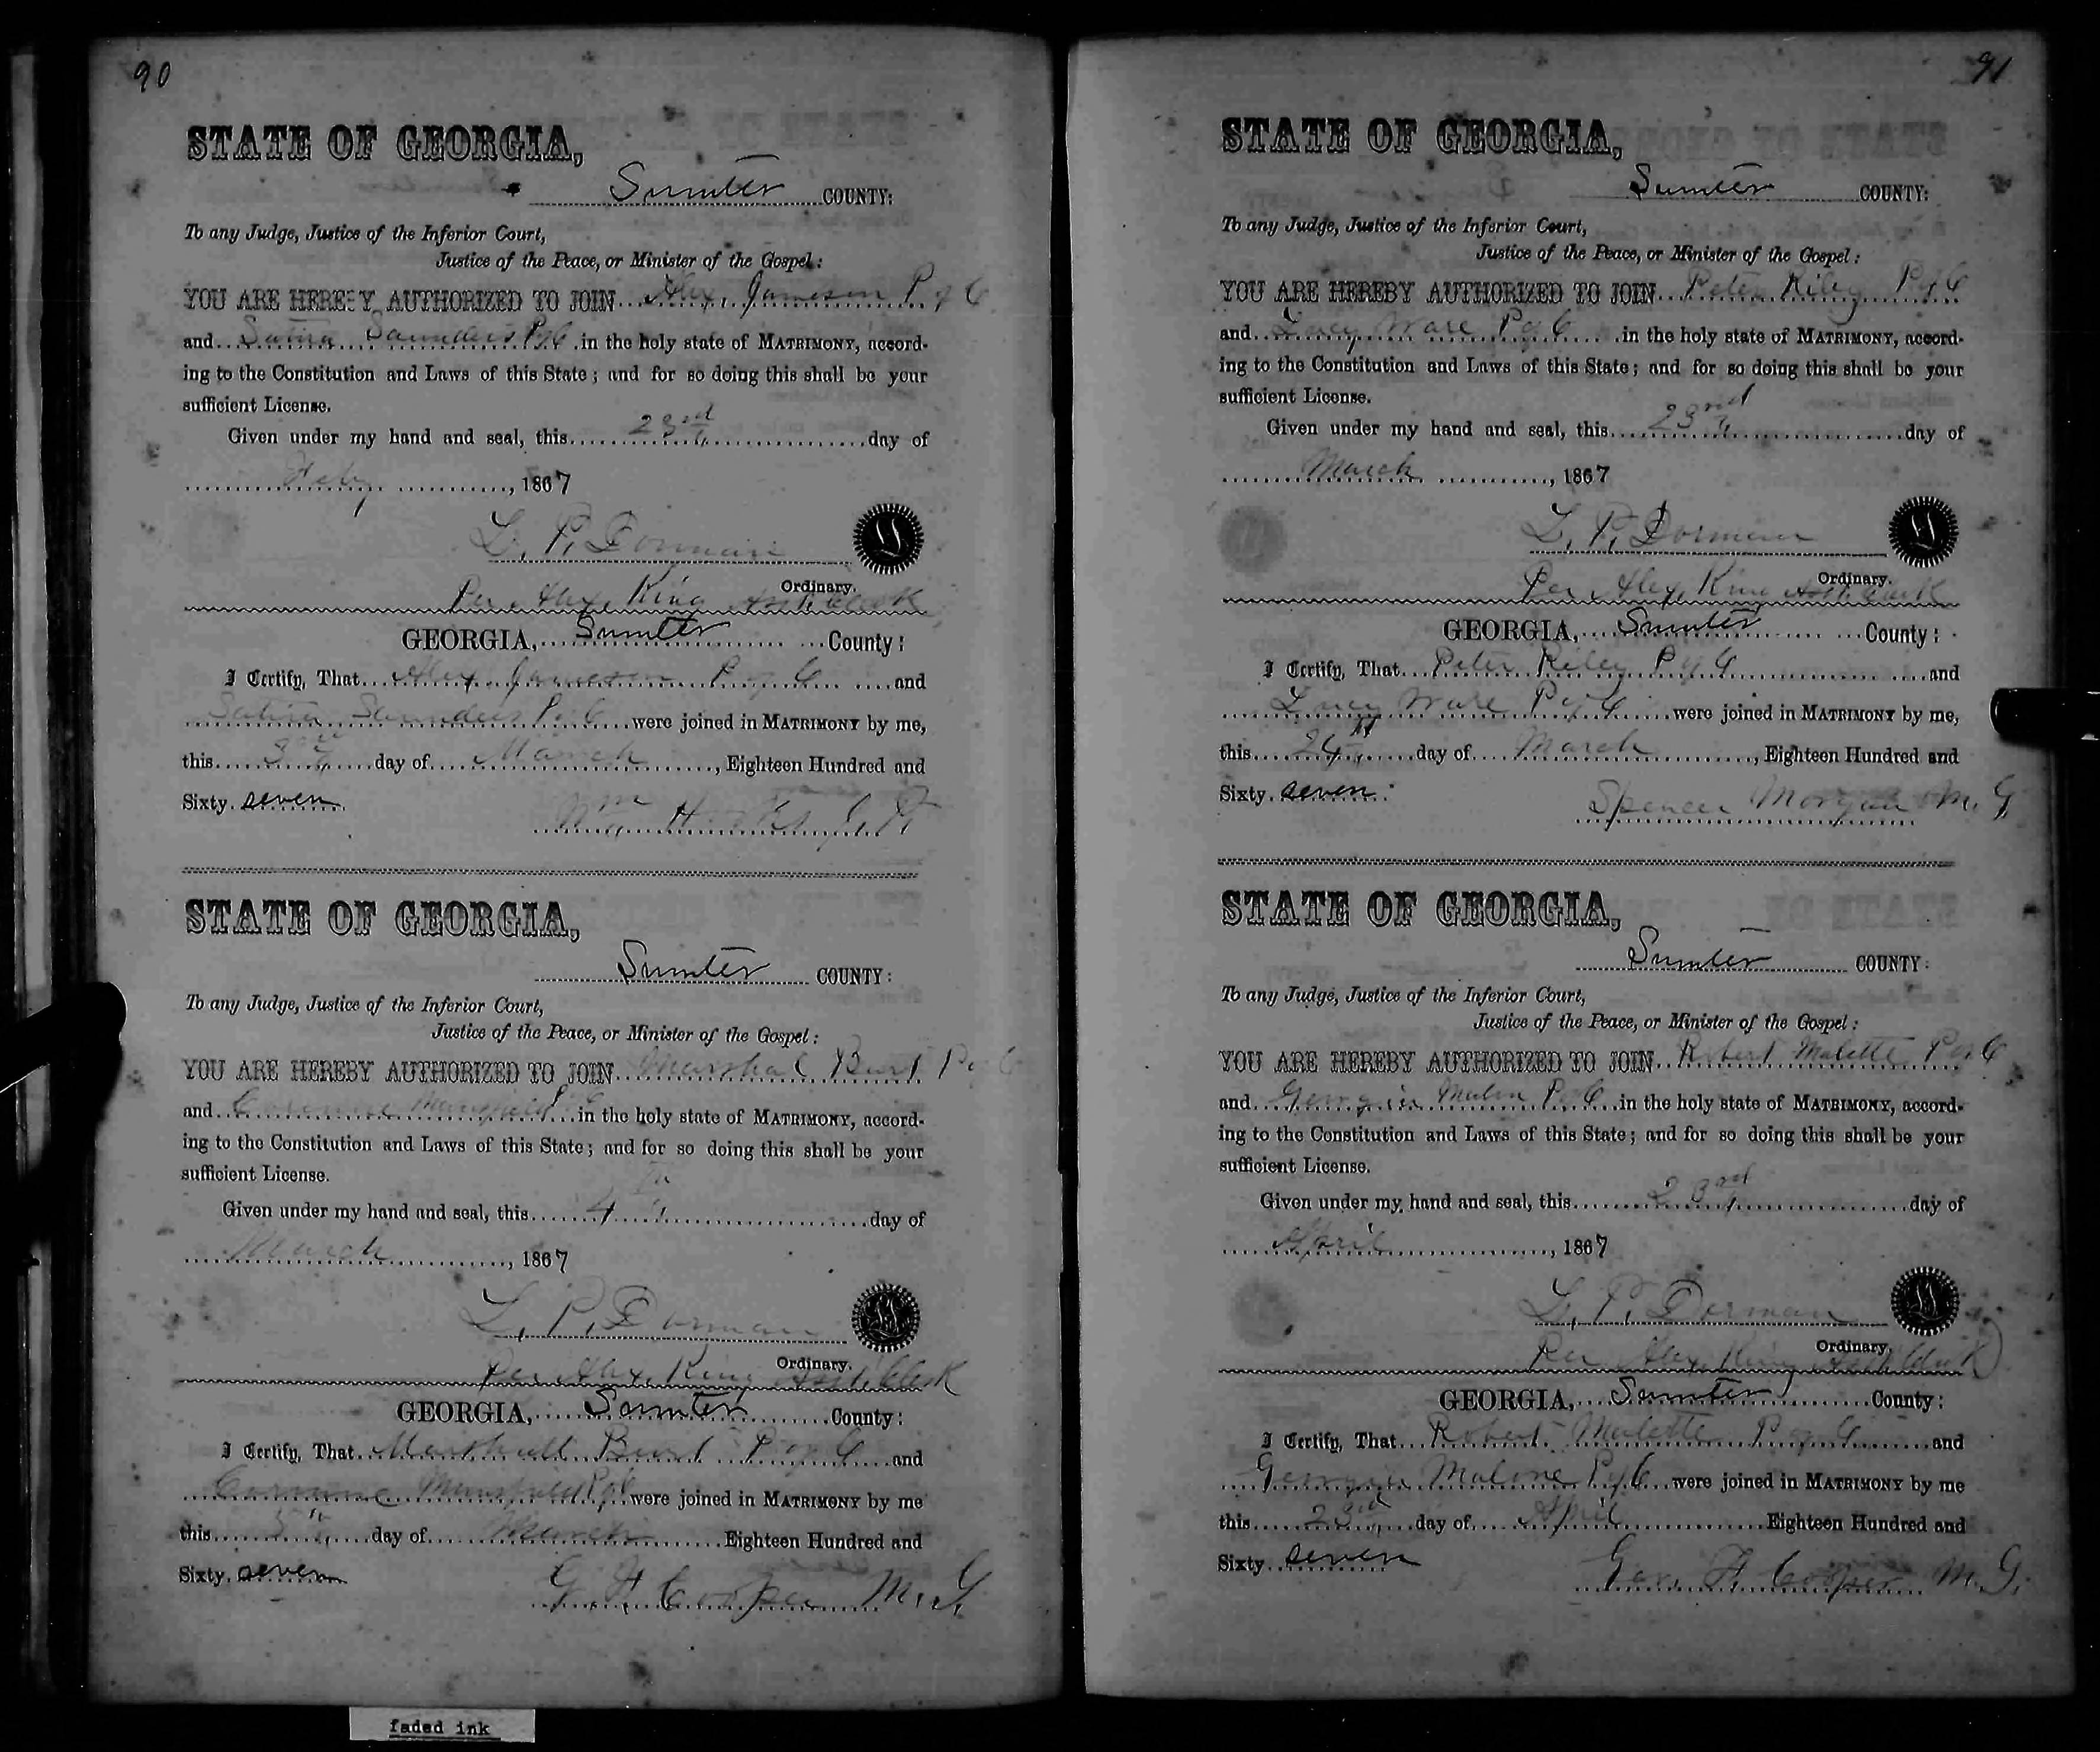 90
STATE OF GEORGIA,
Sumter COUNTY:
To any Judge, Justice of the Inferior Court,
Justice of the Peace, or Minister of the Gospel:
YOU ARE HEREBY AUTHORIZED TO JOIN Alex. Jameson P of C
and Saunders P of C in the holy state of MATRIMONY, accord-
ing to the Constitution and Laws of this State; and for so doing this shall be your
sufficient License.
Given under my hand and seal, this 23rd day of
Feby, 1867
L. P. Dorman
Ordinary.
Per Alex. King Asst. Clerk
GEORGIA, Sumter County:
I Certify, That Alex. Jameson P of C and
Saunders P of C were joined in MATRIMONY by me,
this 3rd day of March, Eighteen Hundred and
Sixty seven
Wm
STATE OF GEORGIA,
Sumter COUNTY:
To any Judge, Justice of the Inferior Court,
Justice of the Peace, or Minister of the Gospel:
YOU ARE HEREBY AUTHORIZED TO JOIN Marshal Burt P of C
and Mansfield P of C in the holy state of MATRIMONY, accord-
ing to the Constitution and Laws of this State; and for so doing this shall be your
sufficient License.
Given under my hand and seal, this 4th day of
March, 1867
L. P. Dorman
Ordinary.
Per Alex. King Asst. Clerk
GEORGIA, Sumter County:
I Certify, That Marshall Burt P of C and
Mansfield P of C were joined in MATRIMONY by me
this day of March Eighteen Hundred and
Sixty seven
G. F. Cooper M. G.
91
STATE OF GEORGIA,
Sumter COUNTY:
To any Judge, Justice of the Inferior Court,
Justice of the Peace, or Minister of the Gospel:
YOU ARE HEREBY AUTHORIZED TO JOIN Peter Riley P of C
and Lucy Ware P of C in the holy state of MATRIMONY, accord-
ing to the Constitution and Laws of this State; and for so doing this shall be your
sufficient License.
Given under my hand and seal, this 23rd day of
March, 1867
L. P. Dorman
Ordinary.
Per Alex. King Asst. Clerk
GEORGIA, Sumter County:
I Certify, That Peter Riley P of C and
Lucy Ware P of C were joined in MATRIMONY by me,
this 24th day of March, Eighteen Hundred and
Sixty seven
Spencer Morgan M. G.
STATE OF GEORGIA,
Sumter COUNTY:
To any Judge, Justice of the Inferior Court,
Justice of the Peace, or Minister of the Gospel:
YOU ARE HEREBY AUTHORIZED TO JOIN Robert Malette P of C
and Georgia P of C in the holy state of MATRIMONY, accord-
ing to the Constitution and Laws of this State; and for so doing this shall be your
sufficient License.
Given under my hand and seal, this 23rd day of
April, 1867
L. P. Dorman
Ordinary.
Per Alex. King Asst. Clerk
GEORGIA, Sumter County:
I Certify, That Robert Malette P of C and
Georgia Malone P of C were joined in MATRIMONY by me
this 23rd day of April Eighteen Hundred and
Sixty seven
Geo. F. Cooper M. G.
faded ink